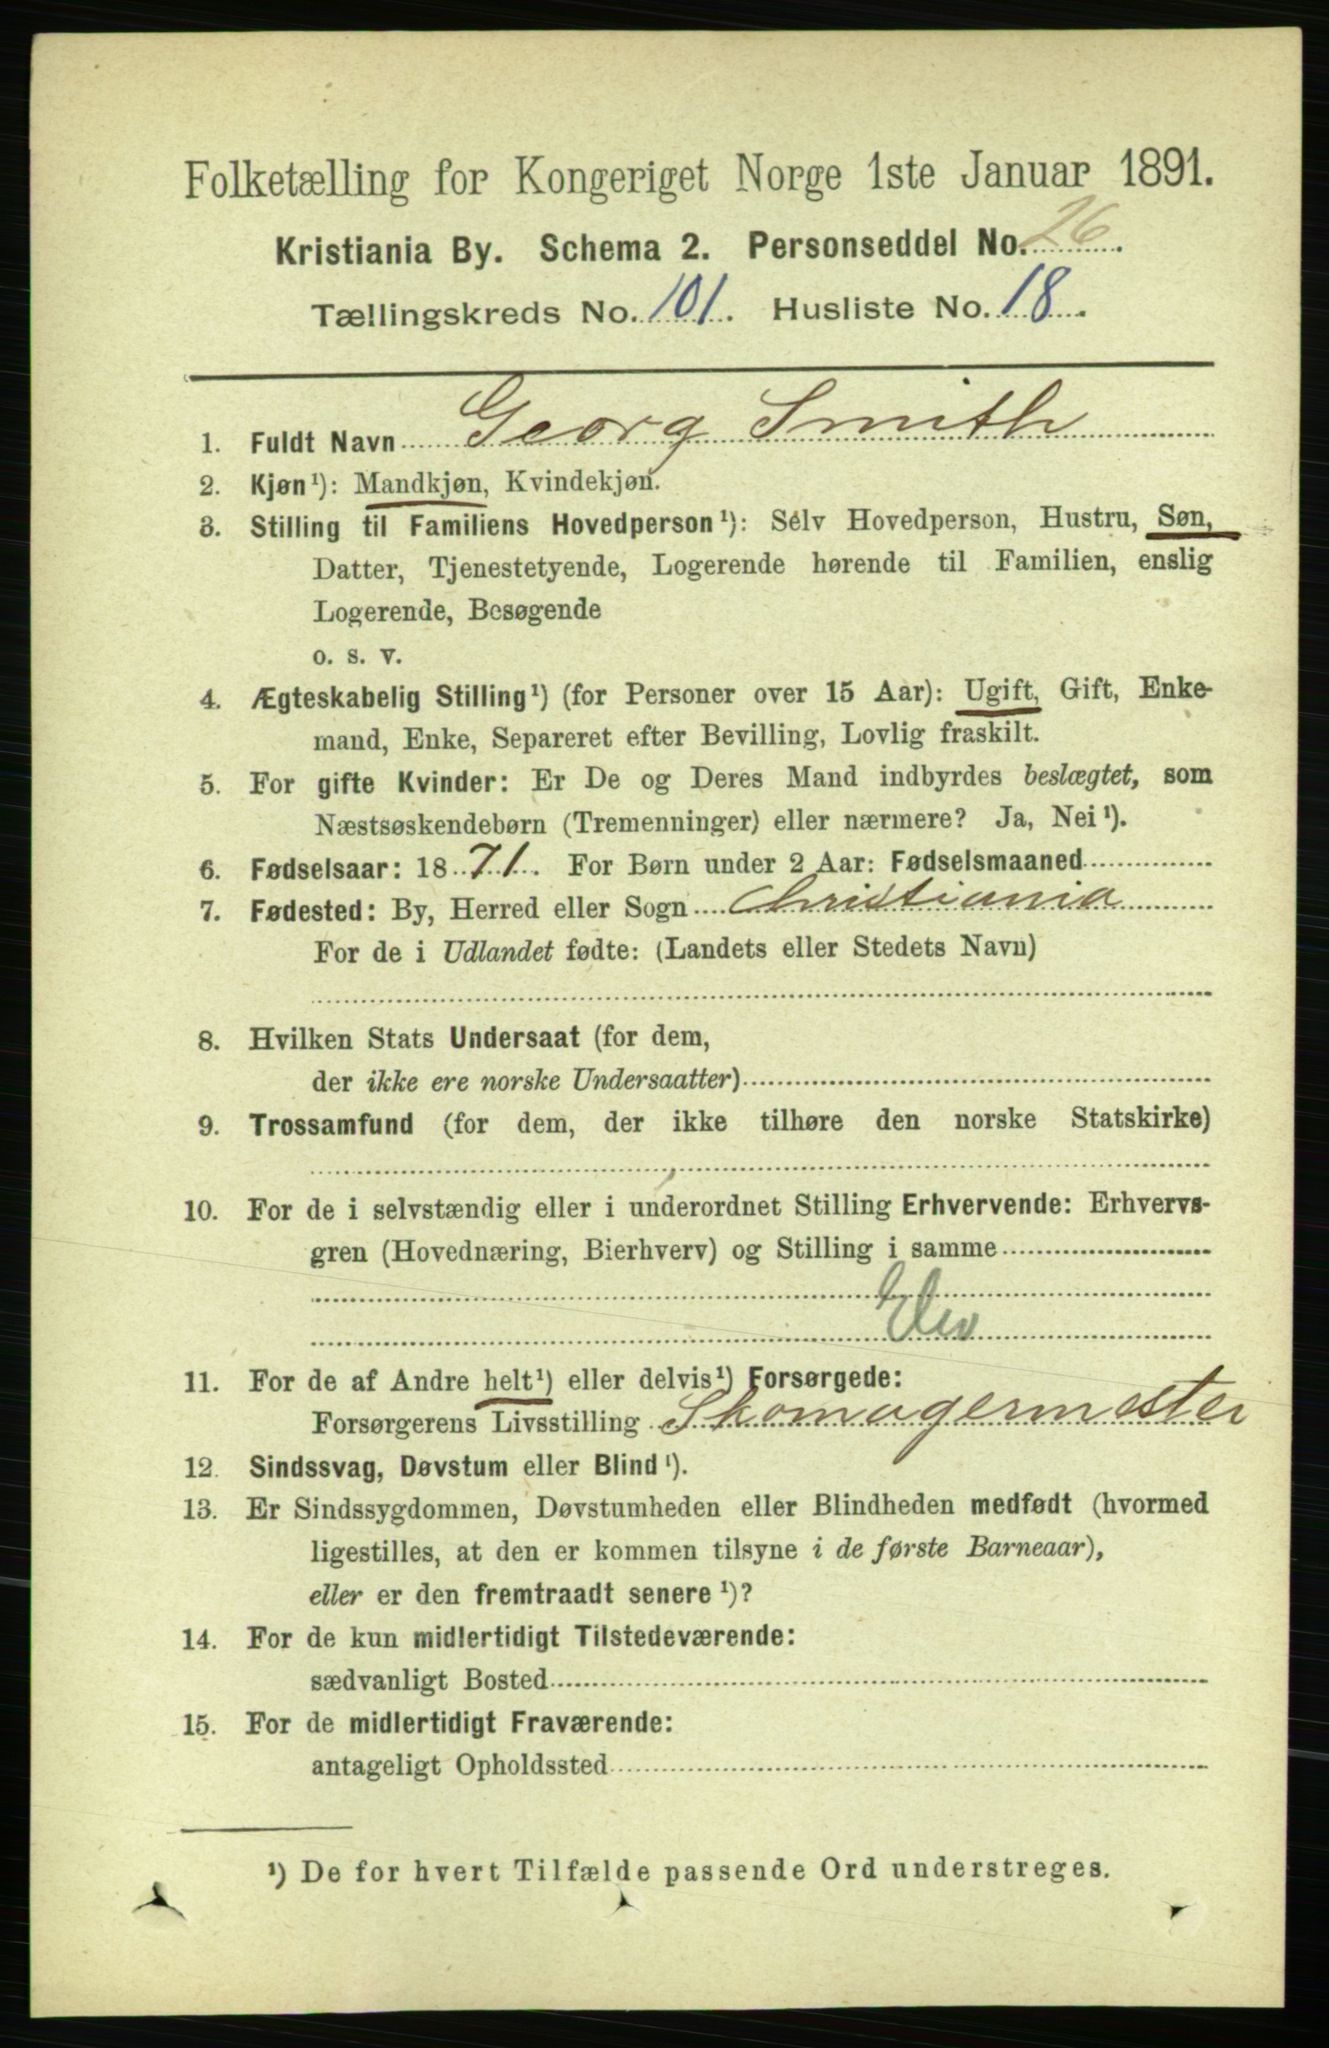 Folketælling for Kongeriget Norge 1ste Januar 1891.
Kristiania By. Schema 2. Personseddel No. 26.
Tællingskreds No. 101. Husliste No. 18.
1. Fuldt Navn Georg Smith
2. Kjøn¹): Mandkjøn, Kvindekjøn.
3. Stilling til Familiens Hovedperson¹): Selv Hovedperson, Hustru, Søn,
Datter, Tjenestetyende, Logerende hørende til Familien, enslig
Logerende, Besøgende
o. s. v.
4. Ægteskabelig Stilling¹) (for Personer over 15 Aar): Ugift, Gift, Enke-
mand, Enke, Separeret efter Bevilling, Lovlig fraskilt.
5. For gifte Kvinder: Er De og Deres Mand indbyrdes beslægtet, som
Næstsøskendebørn (Tremenninger) eller nærmere? Ja, Nei¹).
6. Fødselsaar: 1871. For Børn under 2 Aar: Fødselsmaaned
7. Fødested: By, Herred eller Sogn Christiania
For de i Udlandet fødte: (Landets eller Stedets Navn)
8. Hvilken Stats Undersaat (for dem,
der ikke ere norske Undersaatter)
9. Trossamfund (for dem, der ikke tilhøre den norske Statskirke)
10. For de i selvstændig eller i underordnet Stilling Erhvervende: Erhvervs-
gren (Hovednæring, Bierhverv) og Stilling i samme
Elev
11. For de af Andre helt¹) eller delvis¹) Forsørgede:
Forsørgerens Livsstilling Skomagermester
12. Sindssvag, Døvstum eller Blind¹).
13. Er Sindssygdommen, Døvstumheden eller Blindheden medfødt (hvormed
ligestilles, at den er kommen tilsyne i de første Barneaar),
eller er den fremtraadt senere¹)?
14. For de kun midlertidigt Tilstedeværende:
sædvanligt Bosted
15. For de midlertidigt Fraværende:
antageligt Opholdssted
¹) De for hvert Tilfælde passende Ord understreges.